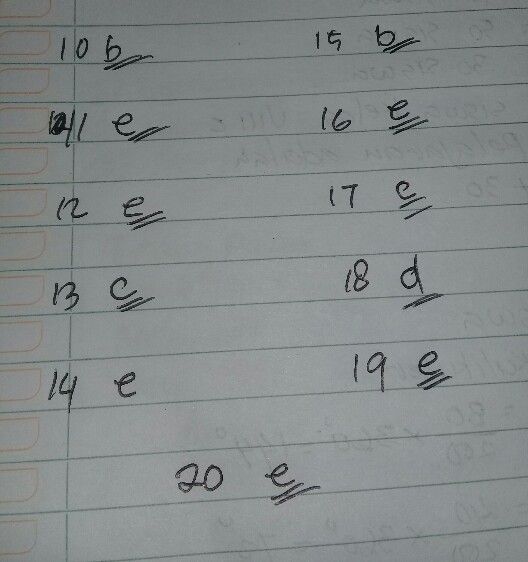 10 b 15 b
11 e 16 e
12 e 17 c
13 c 18 d
14 e 19 e
20 e